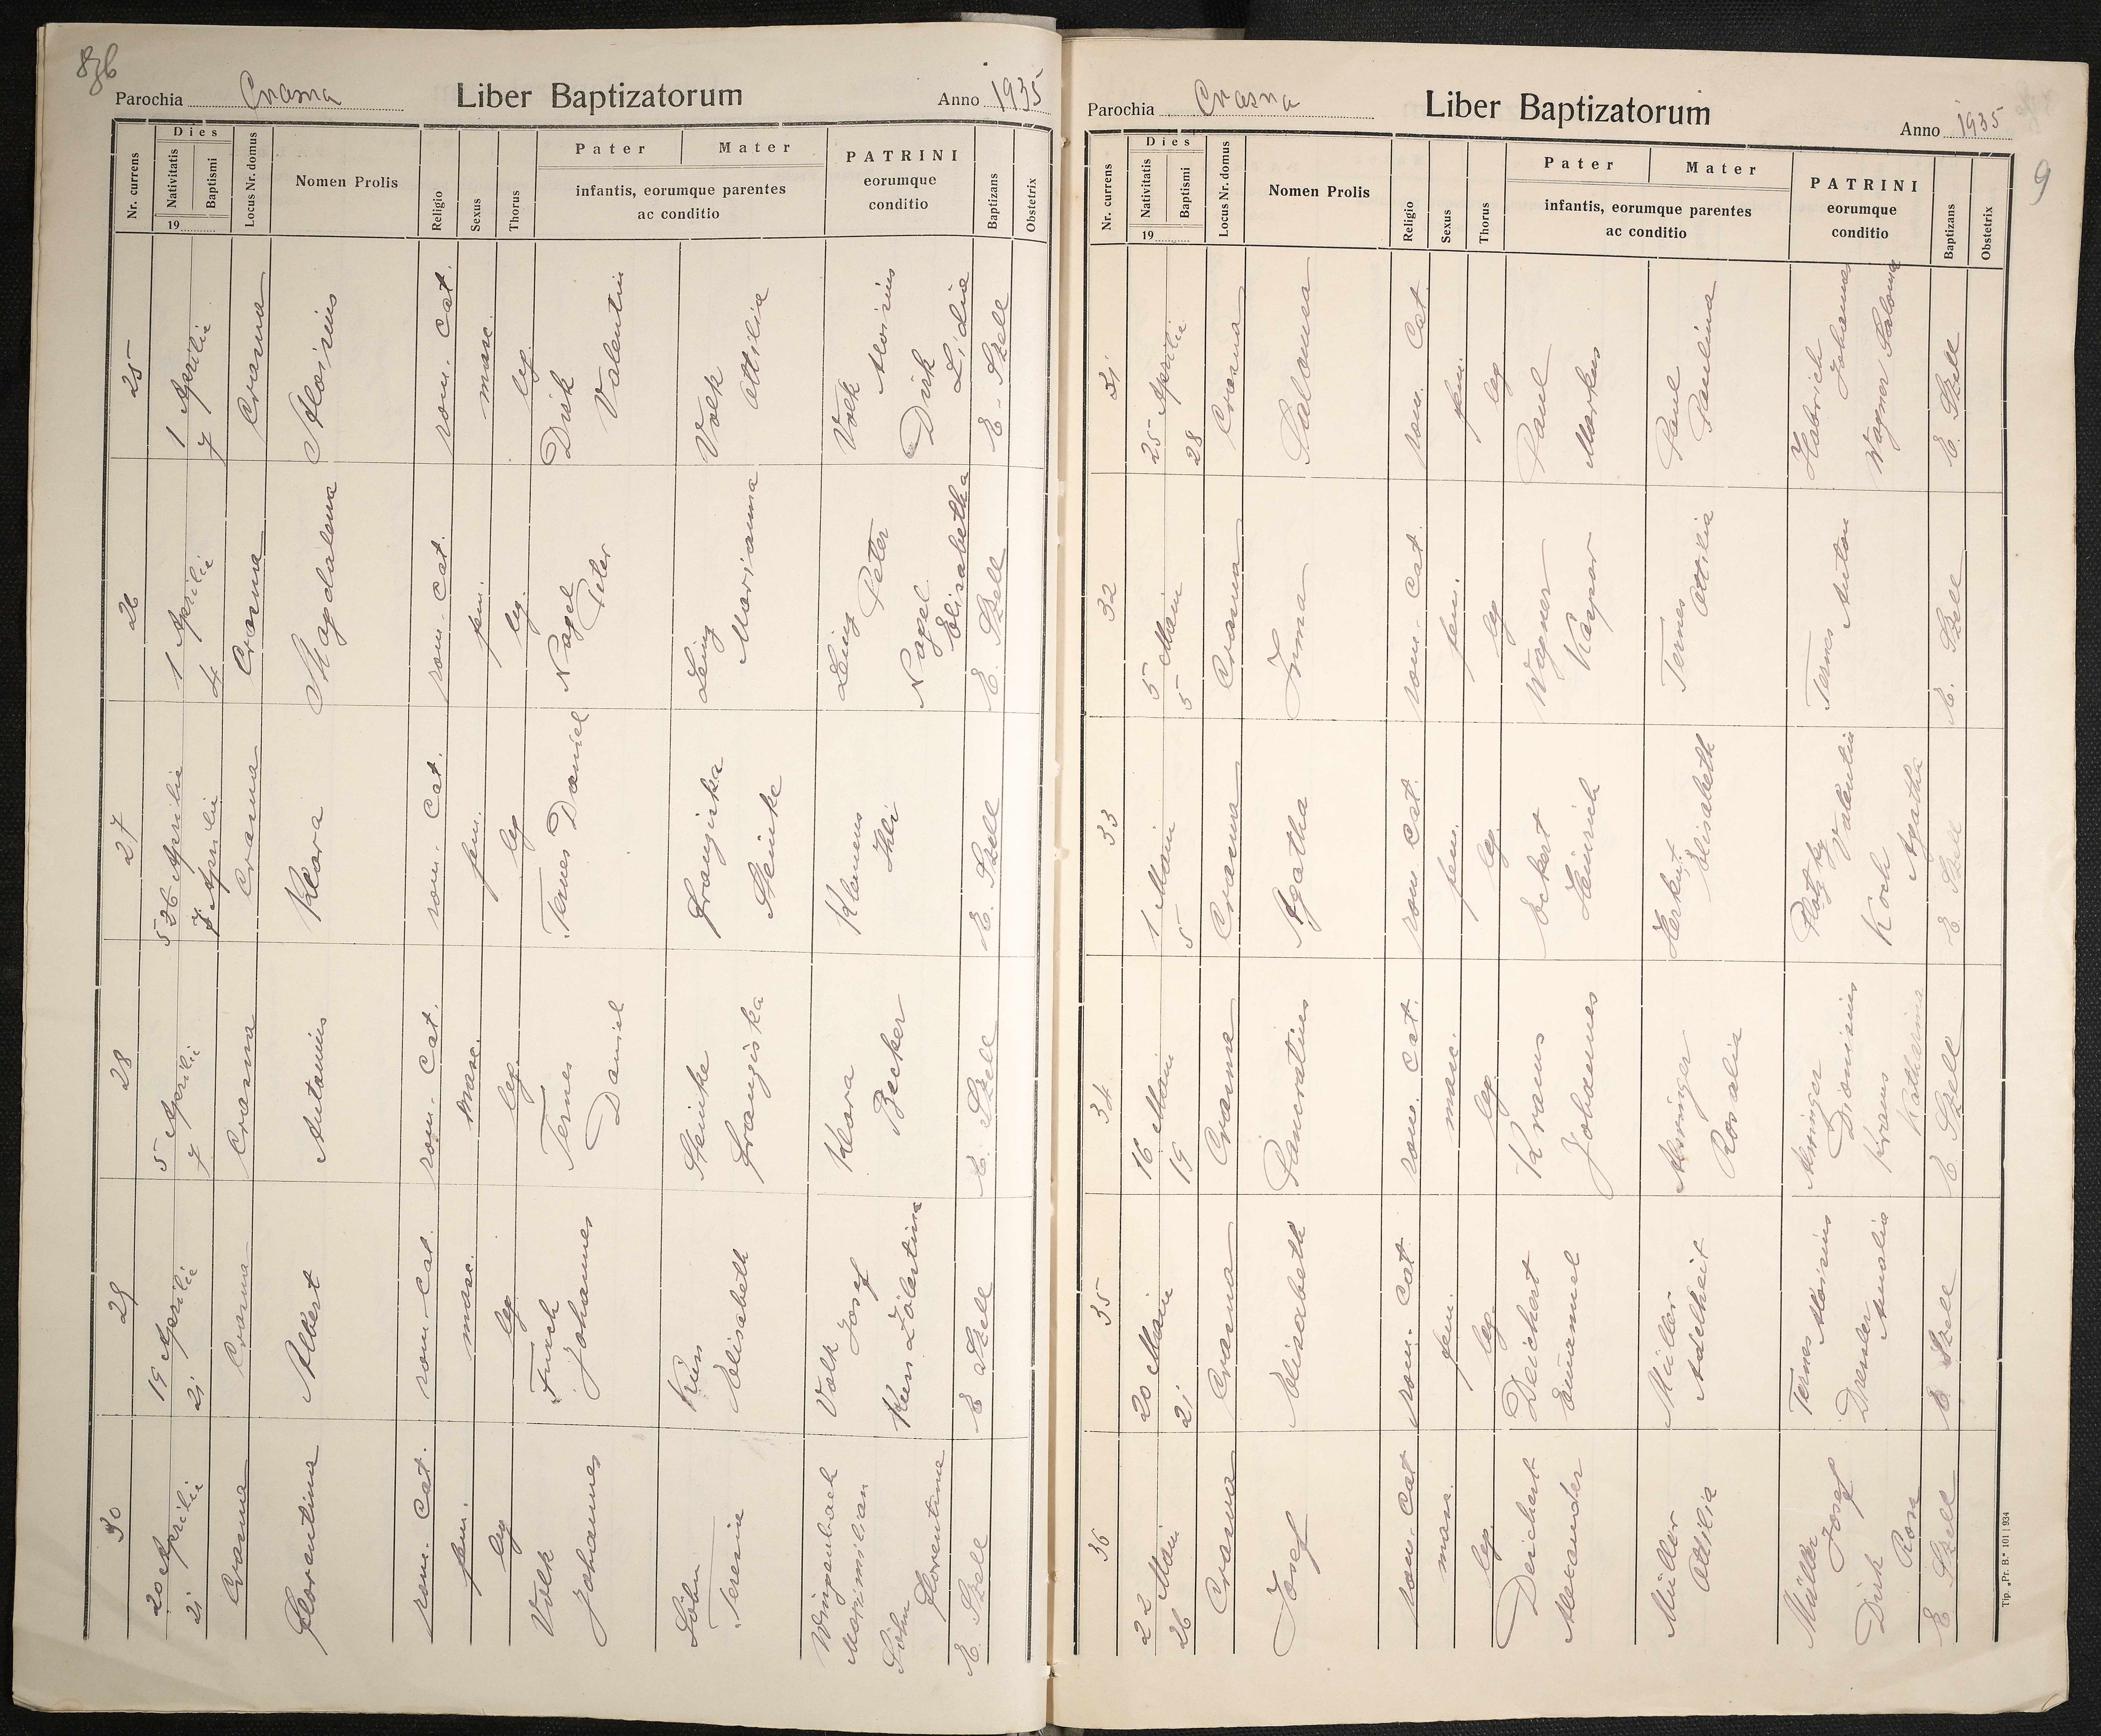 836
Parochia Crasna Liber Baptizatorum Anno 1935
Nr. currens
Dies
Nativitatis
Baptismi
19
Locus Nr. domus
Nomen Prolis
Religio
Sexus
Thorus
Pater Mater
infantis, eorumque parentes
ac conditio
PATRINI
eorumque
conditio
Baptizans
Obstetrix
25
1 Aprilie
7
Crasna
Aloisius
rom. Cat.
masc.
leg.
Dirk
Valentin
Volk
Ottilia
Volk
Aloisius
Dirk
Lidia
E. Szell
26
1 Aprilie
4
Crasna
Magdalena
rom. Cat.
fem.
leg.
Nagel
Peter
Leinz
Marianna
Leinz
Peter
Nagel
Elisabetha
E. Szell
27
Aprilie
7 Aprilie
Crasna
Klara
rom. Cat.
fem.
leg
Ternes Daniel
Franziska
Steinke
Klemens
Ihli
E. Szell
28
5 Aprilie
7
Crasna
Antonius
rom. Cat.
masc.
leg.
Ternes
Daniel
Steinke
Franziska
Klara
Becker
E. Szell
29
19 Aprilie
21
Crasna
Albert
rom. Cat.
masc.
leg
Furch
Johannes
Kuss
Elisabeth
Volk
Josef
Kuss Zölestina
E Szell
30
20 Aprilie
21
Crasna
Florentina
rom. Cat.
fem.
leg
Volk
Johannes
Söhn
Teresia
Wingenbach
Maximilian
Söhn
Florentina
E. Szell
Parochia Crasna Liber Baptizatorum Anno 1935
9
Nr. currens
Dies
Nativitatis
Baptismi
19
Locus Nr. domus
Nomen Prolis
Religio
Sexus
Thorus
Pater Mater
infantis, eorumque parentes
ac conditio
PATRINI
eorumque
conditio
Baptizans
Obstetrix
31
25 Aprilie
28
Crasna
Saloma
rom. Cat.
fem.
leg
Paul
Markus
Paul
Paulina
Habrich
Johannes
Wagner Saloma
E. Szell
32
5 Main
5
Crasna
Irma
rom. Cat.
fem.
leg
Wagner
Kaspar
Ternes
Ottilia
Ternes
Anton
E. Szell
33
1 Main
5
Crasna
Agatha
rom Cat.
fem.
leg.
Eckert
Heinrich
Herkut
Elisabeth
Plotzky
Valentin
Koch
Agatha
E. Szell
34
16 Main
19
Crasna
Pancratius
rom. Cat.
masc.
leg
Kraus
Johannes
Arninger
Rosalia
Arninger
Dionisius
Kraus
Katharina
E. Szell
35
20 Main
21
Crasna
Elisabeth
rom. Cat
fem.
leg.
Deichert
Emanuel
Müller
Adelheit
Ternes Aloisius
Dressler
Amalia
E Szell
36
22 Main
26
Crasna
Josef
rom. Cat
masc.
leg.
Deichert
Alexander
Müller
Ottilia
Müller
Josef
Dirk
Rosa
E Szell
Tip. „Pr. B." 101 | 934